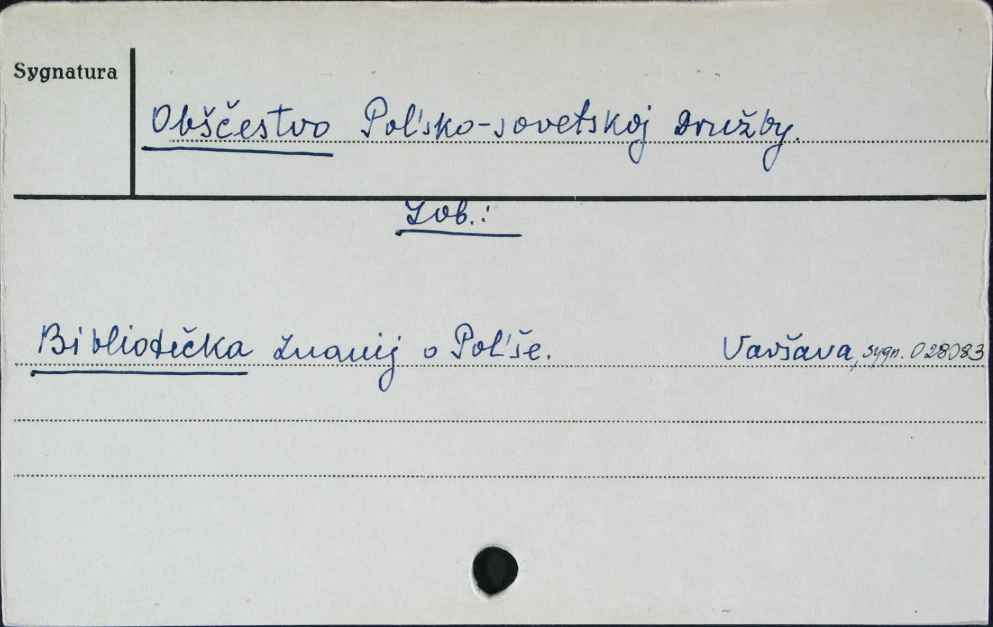 Sygnatura
Obščestvo Pol'sko-sovetskoj Družby.
Zob.:
Bibliotečka znanij o Pol'še. Varšava, sygn. 028083